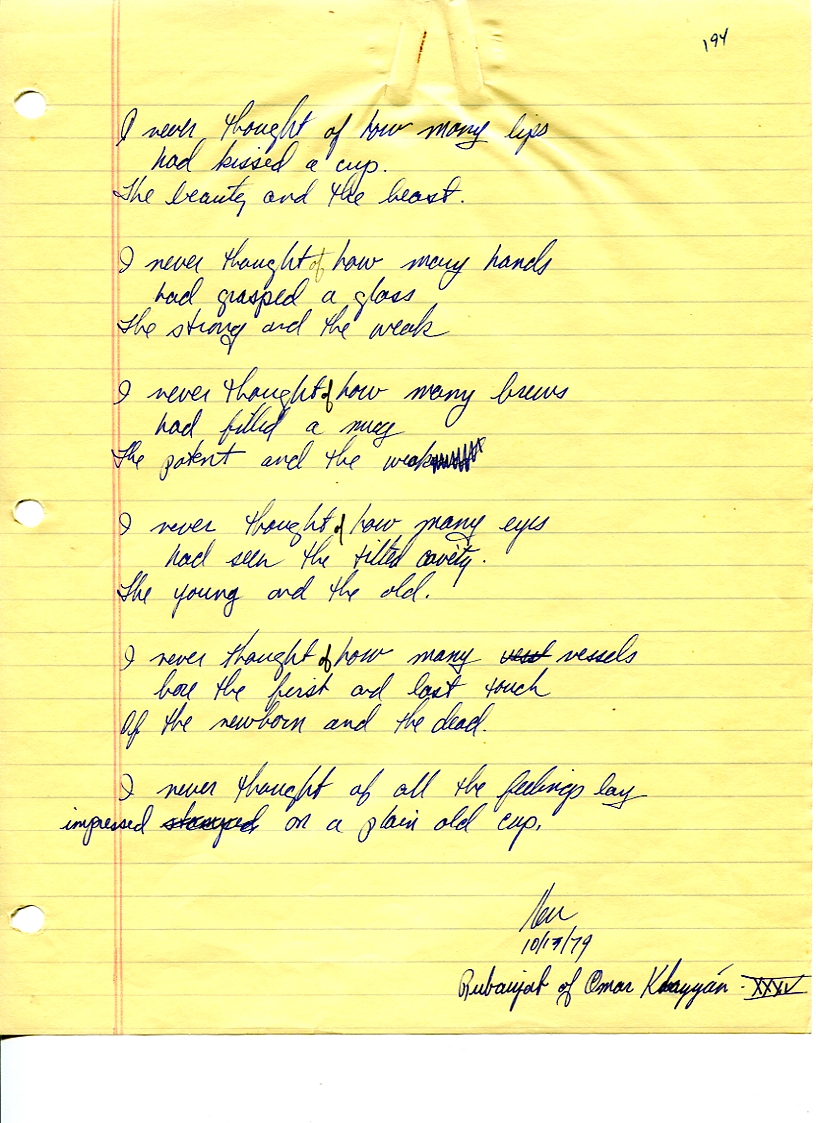 194
I never thought of how many lips
had kissed a cup.
The beauty and the beast.
I never thought of how many hands
had grasped a glass
The strong and the weak
I never thought of how many brews
had filled a mug
The potent and the weak
I never thought of how many eyes
had seen the tilted cavity.
The young and the old.
I never thought of how many vessels
bore the first and last touch
Of the newborn and the dead.
I never thought of all the feelings lay
impressed stamped on a plain old cup.
10/17/79
Rubaiyat of Omar Khayyán - XXXV